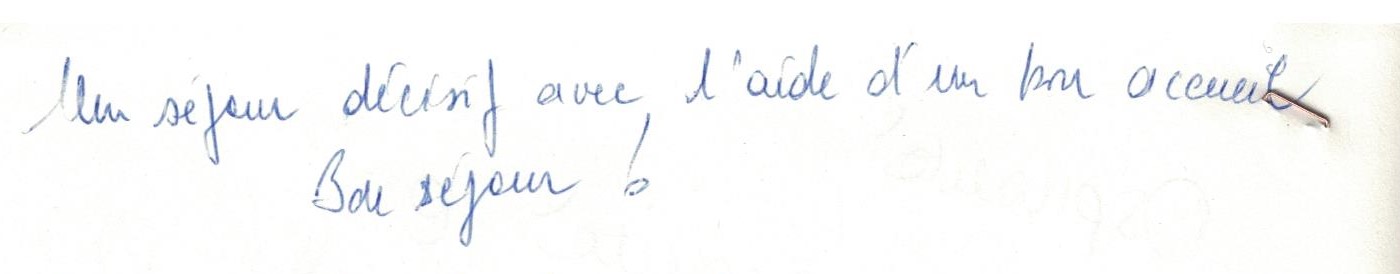 Un séjour décisif avec l'aide d'un bon accueil
Bon séjour !